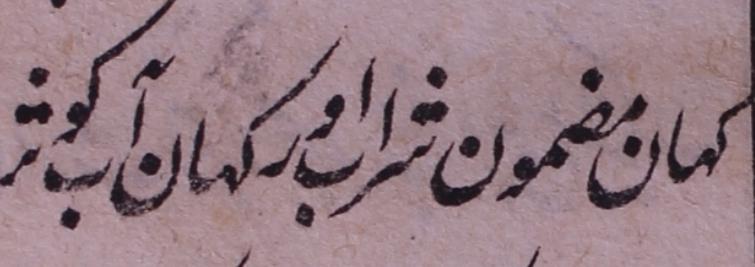 کہان مضمون شراب اور کہان آب کوثر